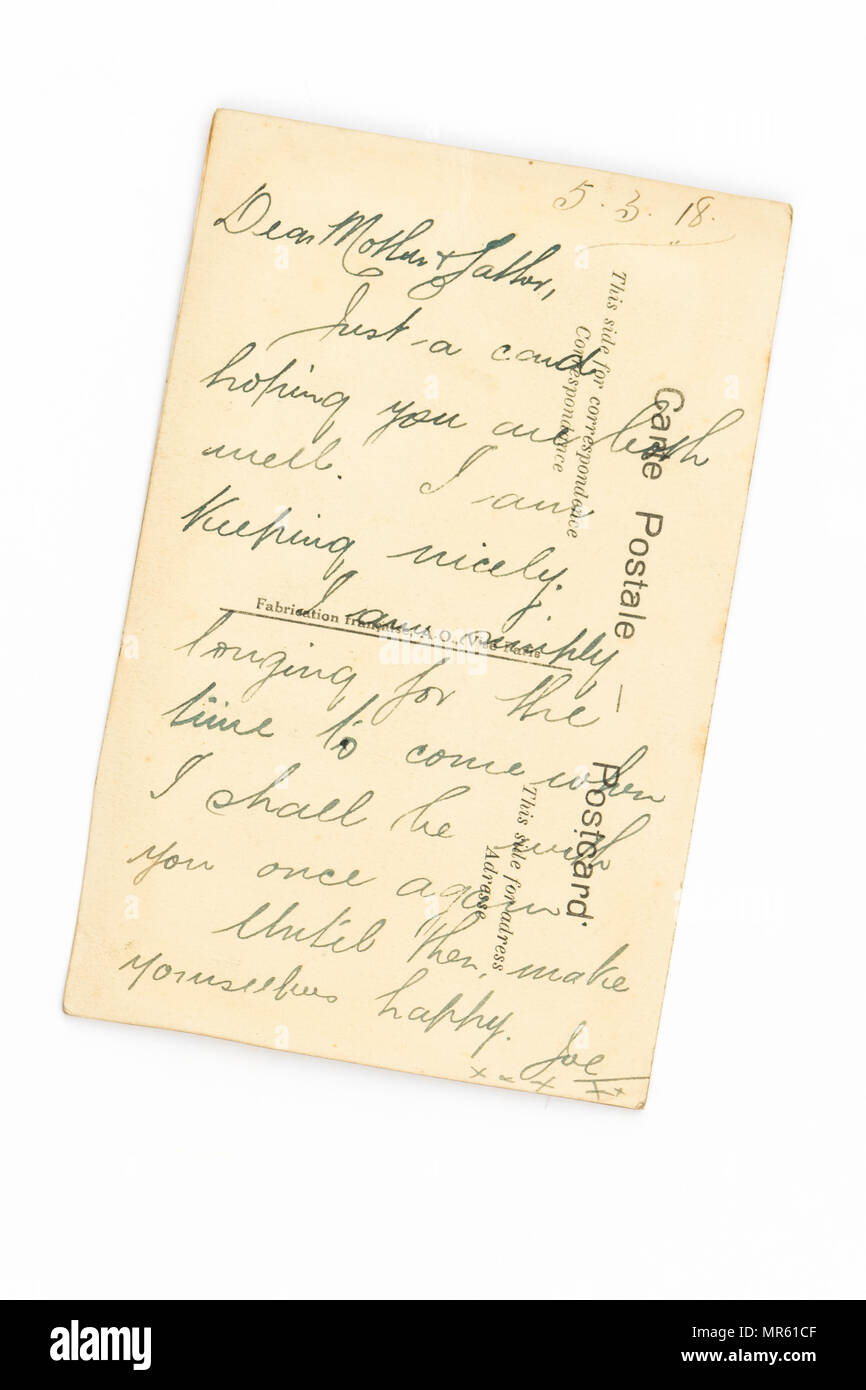 5.3.18.
Dear Mother & Father,
Just a card
hoping you are both
well. I am
keeping nicely.
I am simply
longing for the
time to come when
I shall be with
you once again
Until then, make
yourselves happy. Joe
x x x x x
This side for correspondence
Correspondence
Carte Postale – Postcard.
This side for adress
Adresse
Fabrication française A.O., Visé Paris
alamy
alamy
Image ID: MR61CF
www.alamy.com